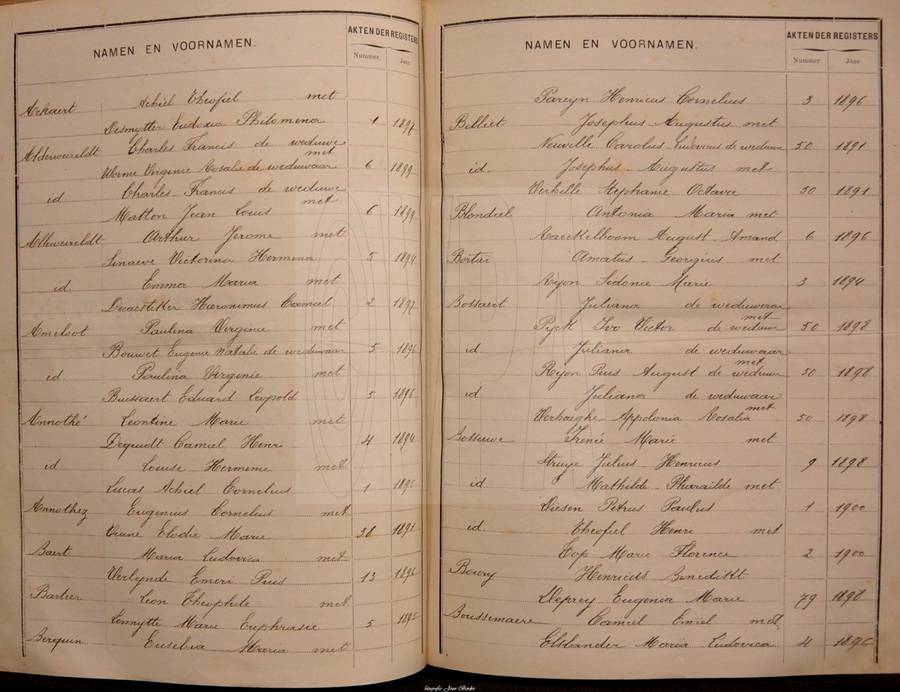 NAMEN EN VOORNAMEN.
AKTEN DER REGISTERS
Nummer. Jaar.
Ackaert Achiel Theofiel met
Desmytter Eudoxia Philomena 1 1897
Alderweireldt Charles Francis de weduwe met
Worme Virginie Rosalie de weduwaar 6 1899
id Charles Francis de weduwe met
Matton Jean Louis 6 1899
Alleweireldt Arthur Jerome met
Sinaeve Victorina Hermina 5 1894
id Emma Maria met
Hieronimus Camiel 2 1897
Ameloot Paulina Virginie met
Bouwet Eugenie Natalie de weduwaar 5 1896
id Paulina Virginie met
Buissaert Eduard Leopold 5 1896
Annothé Leontine Marie met
Dequidt Camiel Henri 4 1894
id Louise Hermenie met
Lucas Achiel Cornelius 1 1895
Annothez Eugenius Cornelius met
Elodie Marie 38 1891
Baert Maria Ludovica met
Verlynde Emeri Pius 13 1896
Bartier Leon Theophile met
Lennytte Marie Euphrasie 5 1895
Berquin Eusebia Maria met
NAMEN EN VOORNAMEN.
AKTEN DER REGISTERS
Nummer. Jaar.
Pareyn Henricus Cornelius 3 1896
Belliet Josephus Augustus met
Neuville Carolus Ludovicus de weduwe 50 1891
id. Josephus Augustus met
Verhille Stephanie Octavie 50 1891
Blondeel Antonia Maria met
Raeckelboom August Amand 6 1896
Bortier Amatus Georgius met
Ryon Sidonie Marie 3 1894
Bossaert Juliana de weduwaar met
Pyck Ivo Victor de weduwe 50 1898
id Juliana de weduwaar met
Ryon Pius August de weduwe 50 1898
id Juliana de weduwaar met
Verhaeghe Appolonia Rosalia 50 1898
Bossuwe Irenie Marie met
Struye Julius Henricus 9 1898
id Mathilde Pharaïlde met
Petrus Paulus 1 1900
id Theofiel Henri met
Top Marie Florence 2 1900
Boury Henricus Benedikt
Deprey Eugenia Marie 79 1898
Boussemaere Camiel Emiel met
Elslander Maria Ludovica 4 1896